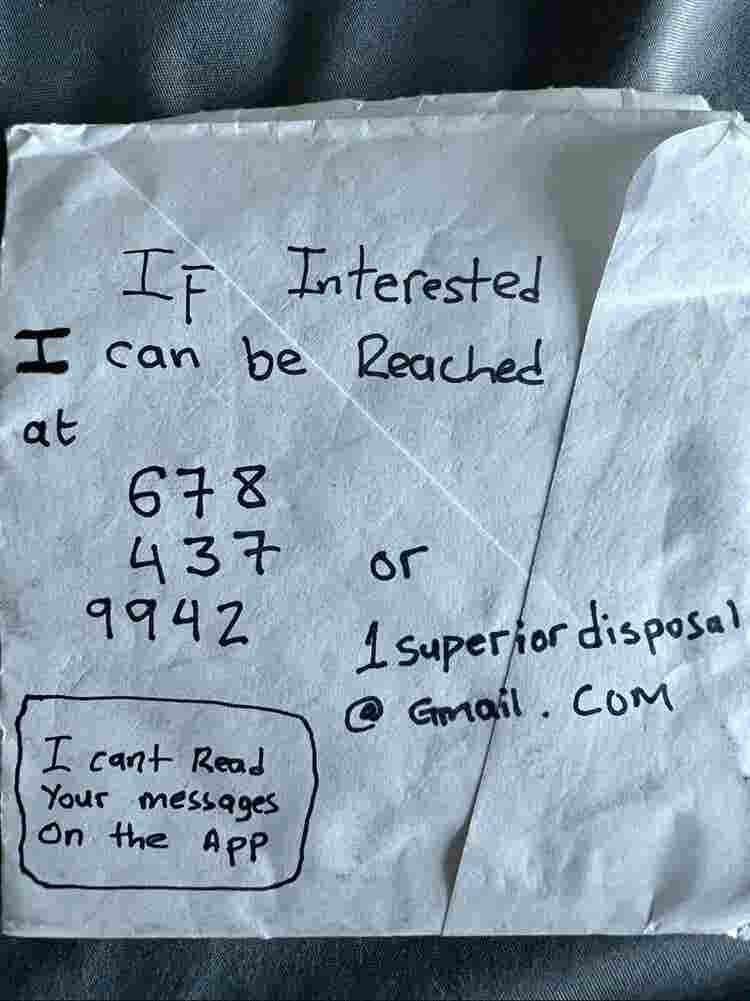 IF Interested
I can be Reached
at
678
437 or
9942
1superiordisposal
@ Gmail . COM
I cant Read
Your messages
On the APP